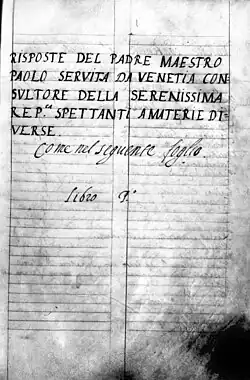 RISPOSTE DEL PADRE MAESTRO
PAOLO SERVITA DA VENETIA CON
SULTORE DELLA SERENISSIMA
REP.ca SPETTANTI A MATERIE DI
VERSE.
Come nel seguente foglio.
Libro P.º